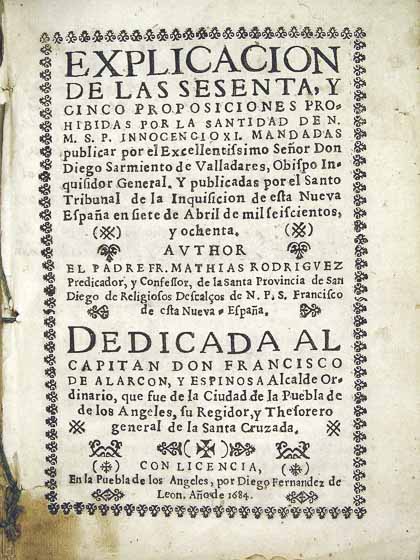 EXPLICACION
DE LAS SESENTA, Y
CINCO PROPOSICIONES PRO-
HIBIDAS POR LA SANTIDAD DE N.
M. S. P. INNOCENCIO XI. MANDADAS
publicar por el Excellentissimo Señor Don
Diego Sarmiento de Valladares, Obispo In-
quisidor General. Y publicadas por el Santo
Tribunal de la Inquisicion de esta Nueva
España en siete de Abril de mil seiscientos,
y ochenta.
AVTHOR
EL PADRE FR. MATHIAS RODRIGVEZ
Predicador, y Confessor, de la Santa Provincia de San
Diego de Religiosos Descalços de N. P. S. Francisco
de esta Nueva-España.
DEDICADA AL
CAPITAN DON FRANCISCO
DE ALARCON, Y ESPINOSA Alcalde Or-
dinario, que fue de la Ciudad de la Puebla de
de los Angeles, su Regidor, y Thesorero
general de la Santa Cruzada.
CON LICENCIA,
En la Puebla de los Angeles, por Diego Fernandez de
Leon. Año de 1684.